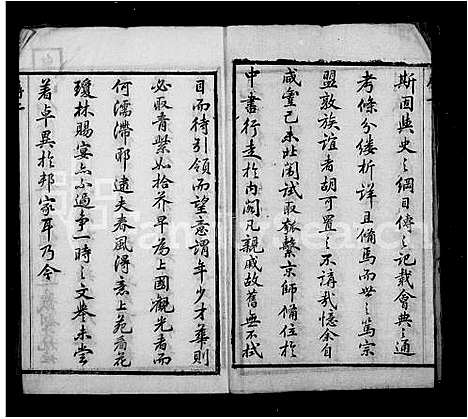 斯固與史之綱目傳之記載會典之通
考條分縷析詳且備焉而世之篤宗
盟敦族誼者胡可置之不講哉憶余自
咸豐己未北闈試取孤繫京師備位於
中書行走於內閣凡親戚故舊無不拭
目而待引領而望意謂年少才華則
必取青紫如拾芥早為上國觀光者而
何濡滯耶逮夫春風得意上苑看花
瓊林賜宴亦不過爭一時之文舉未嘗
著卓異於邦家耳乃今
FamilySearch